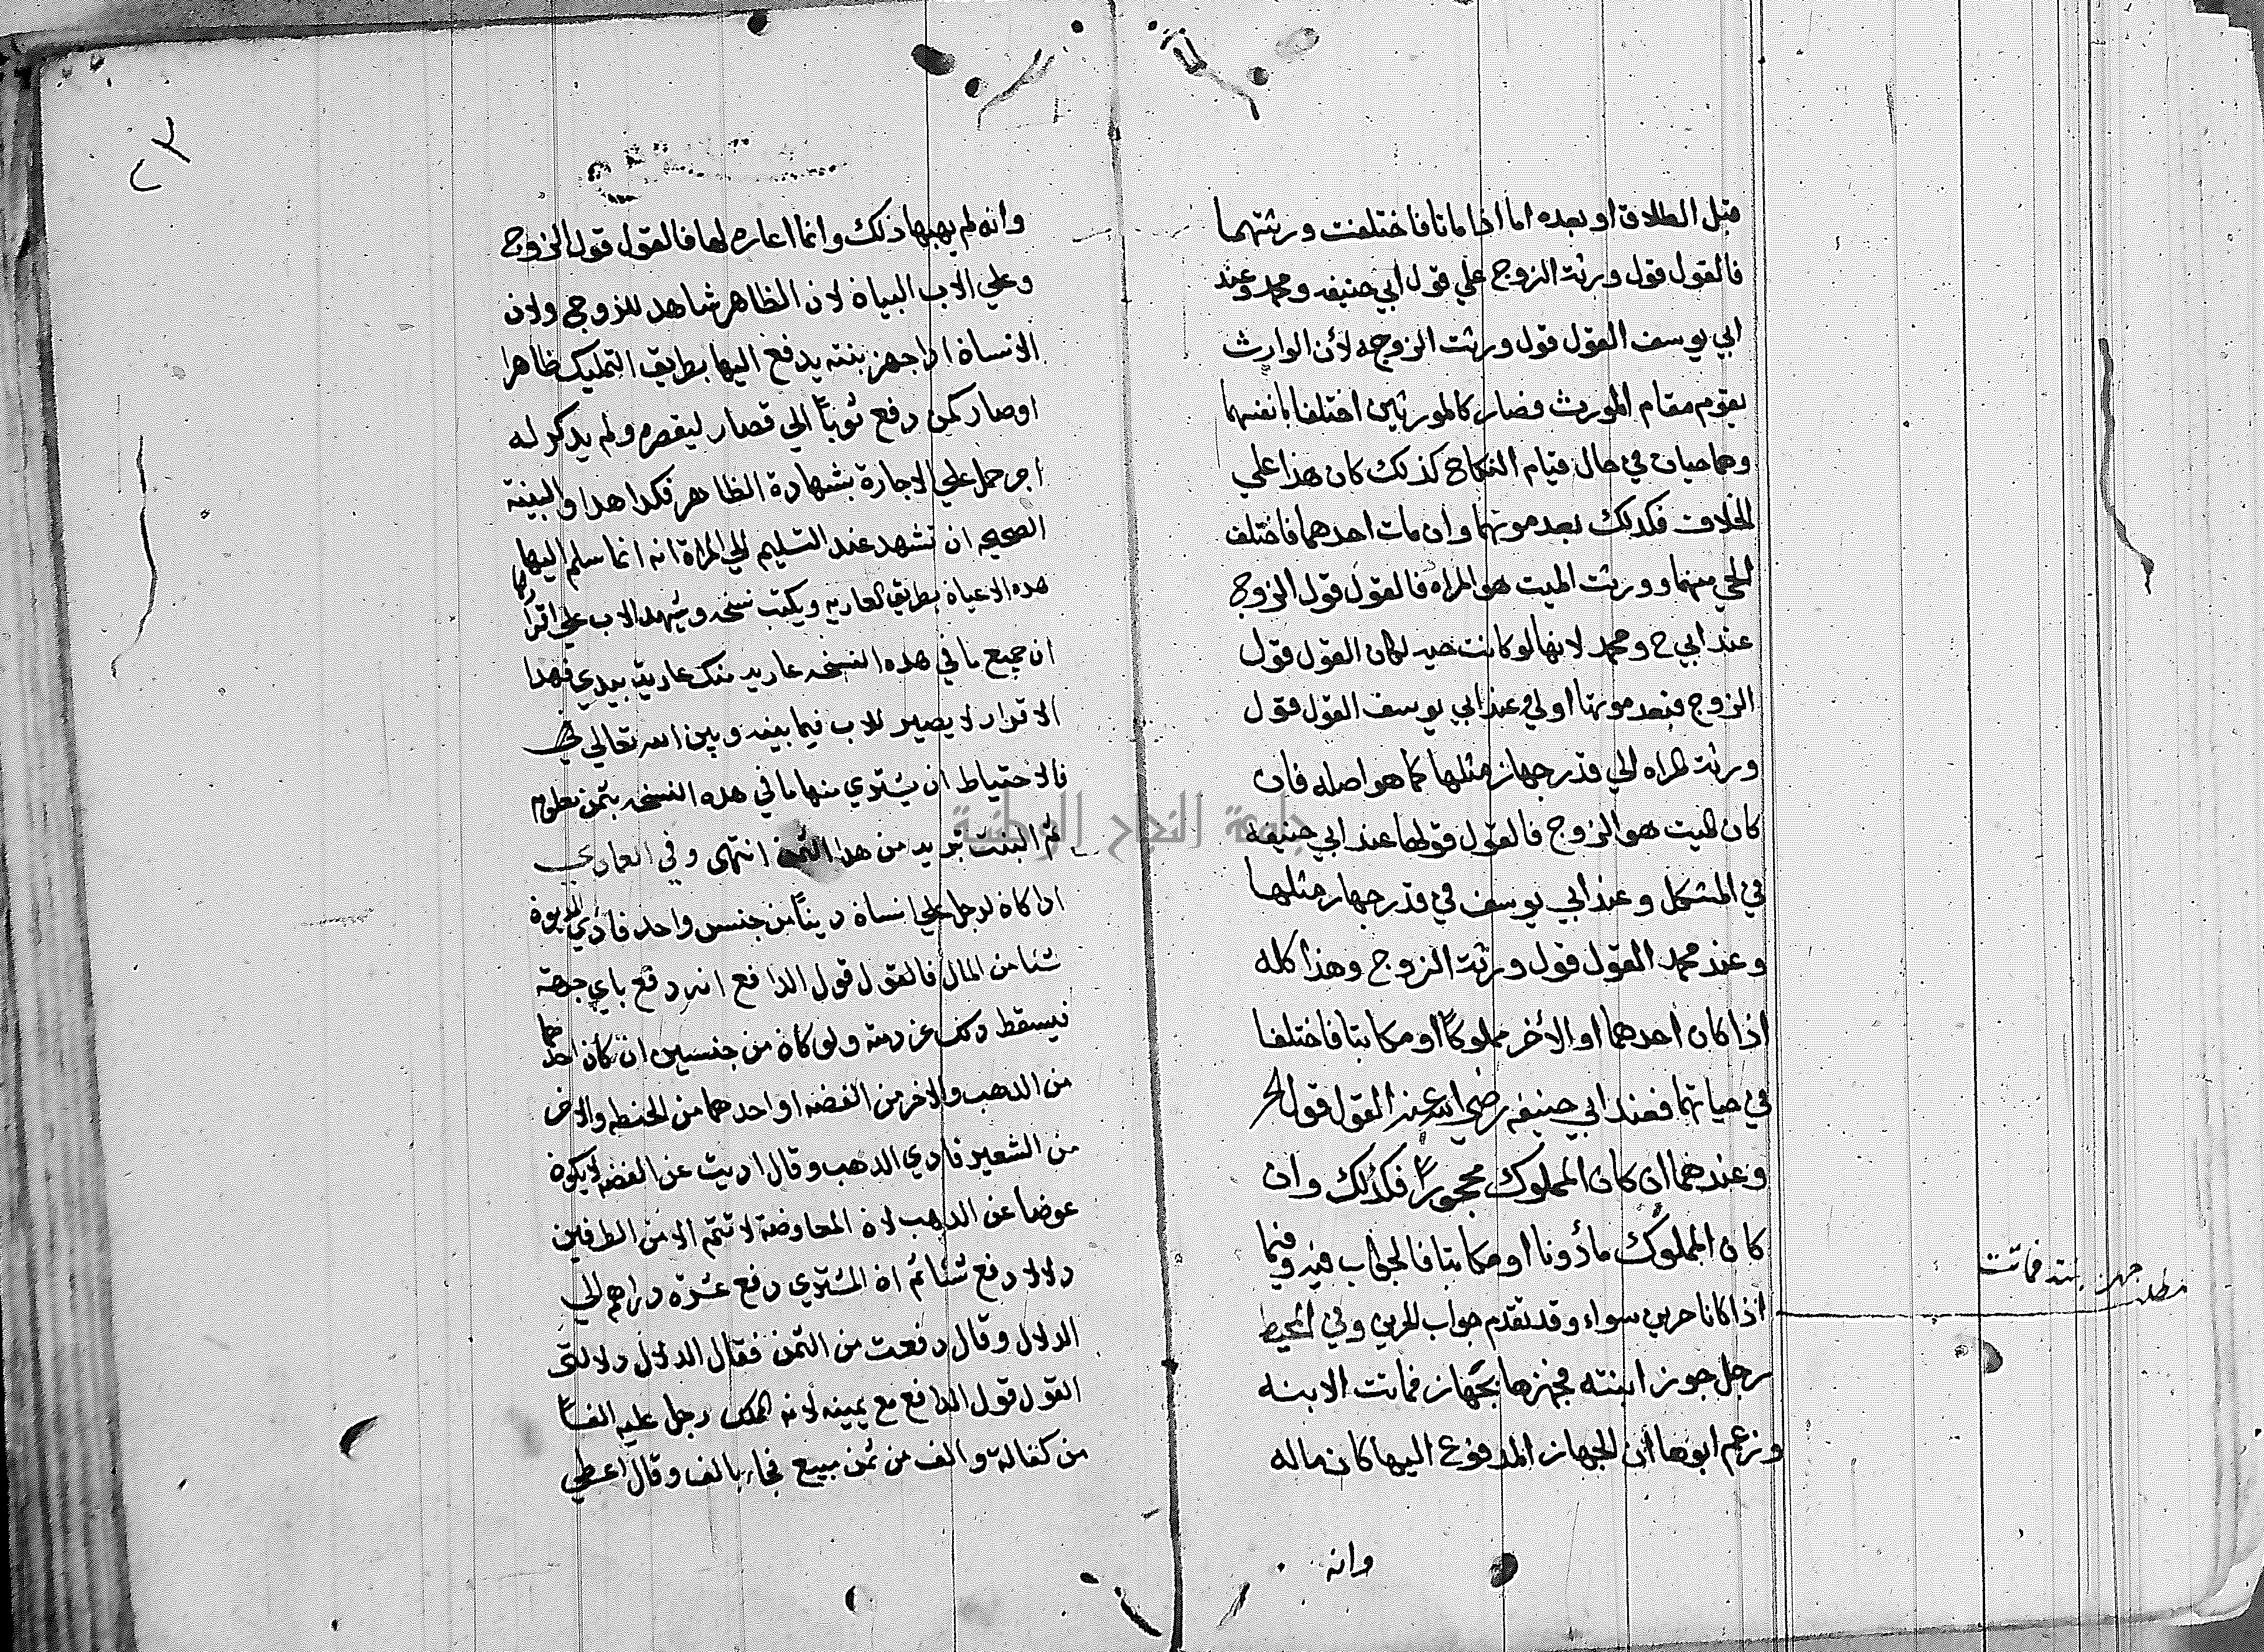 قبل الطلاق او بعده اما اذا ماتا فاختلفت ورثتهما
فالقول قول ورثت الزوج علي قول ابي حنيفه ومحمد وعند
ابي يوسف القول قول ورثت الزوجه لأن الوارث
يقوم مقام المورث فصار كالمورثين اختلفا بانفسهما
وهما حيان في حال قيام النكاح كذلك كان هذا علي
الخلاف فكذلك بعد موتهما وان مات احدهما فاختلف
الحي منهما وورثت الميت هو المراه فالقول قول الزوج
عند ابي ح ومحمد لانها لو كانت حيه لكان القول قول
الزوج فبعد موتها اولي وعند ابي يوسف القول قول
ورثت المراه الي قدر جهاز مثلها كما هو اصله فان
كان الميت هو الزوج فالقول قولها عند ابي حنيفه
في المشكل وعند ابي يوسف في قدر جهاز مثلها
وعند محمد القول قول ورثت الزوج وهذا كله
اذا كان أحدهما او الأخر مملوكاً او مكاتبا فاختلفا
في حياتهما فعند ابي حنيفه رضي الله عنه القول قول الحر
وعندهما ان كان المملوك محجوراً فكذلك وان
كان المملوك مأذونا او مكاتبا فالجواب فيه وفيما
اذا كانا حرين سواء وقد تقدم جواب الحرين وفي المحيط
رجل جوز ابنته فجهزها بجهاز فماتت الابنه
وزعم ابوها أن الجهاز المدفوع اليها كان ماله
وانه
مطلب جهز بنته فماتت
٢٢
وانه لم يهبها ذلك وانما اعاره لها فالقول قول الزوج
وعلي الاب البياة لان الظاهر شاهد للزوج ولان
الانساة اذا جهز بنته يدفع اليها بطريق التمليك ظاهرا
اوصار كمن دفع ثوباً الي قصار ليقصره ولم يذكر له
اجر حمل علي الاجارة بشهادة الظاهر فكذا هذا والبينة
الصحيحه ان تشهد عند التسليم الي المراة انه انما سلم اليها
هذه الاعياة بطريق العاريه ويكتب نسخه ويشهد الاب علي اقرارها
ان جميع ما في هذه النسخه عاريه منك عارية بيدي فهذا
الاقرار لا يصير للاب فيما بينه وبين الله تعالي
فالاحتياط ان يشتري منها ما في هذه النسخه بثمن معلوم
ثم البنت تبريه من هذا الثمن انتهى وفي العمادي
اذا كاة لرجل علي انساة ديناً من جنس واحد فأدي المديوة
شئا من المال فالقول قول الدافع انه دفع باي جهة
فيسقط ذلك عن ذمته ولو كاة من جنسين ان كان احدهما
من الذهب والاخر من الفضه او احدهما من الحنطه والاخر
من الشعير فادي الذهب وقال اديت عن الفضه لا يكوة
عوضا عن الذهب لاة المعاوضة لا تتم الا من الطرفين
دلالا دفع شئا ثم اة المشتري دفع عشرة دراهم الي
الدلال وقال دفعت من الثمن فقال الدلال دلالتي
القول قول الدافع مع يمينه لانه المملك رجل عليه الفاً
من كفالة والف من ثمن مبيع فجاء بالف وقال اعطي
جامعة النجاح الوطنية